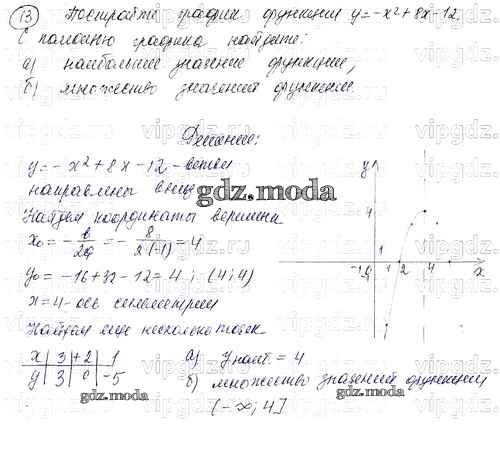 13) Постройте график функции y = -x² + 8x - 12.
С помощью графика найдите:
а) наибольшее значение функции,
б) множество значений функции.
Решение:
y = -x² + 8x - 12 - ветви
направлены вниз
gdz.moda
Найдём координаты вершины
x₀ = - b/2a = - 8/2·(-1) = 4
y₀ = -16 + 32 - 12 = 4; (4; 4)
x = 4 - ось симметрии
Найдём ещё несколько точек.
x | 3 | 2 | 1
y | 3 | 0 | -5
gdz.moda
а) y наиб. = 4
б) множество значений функции
(-∞; 4]
gdz.moda
y
4
1
-1 0 1 2 4 x
vipgdz.ru